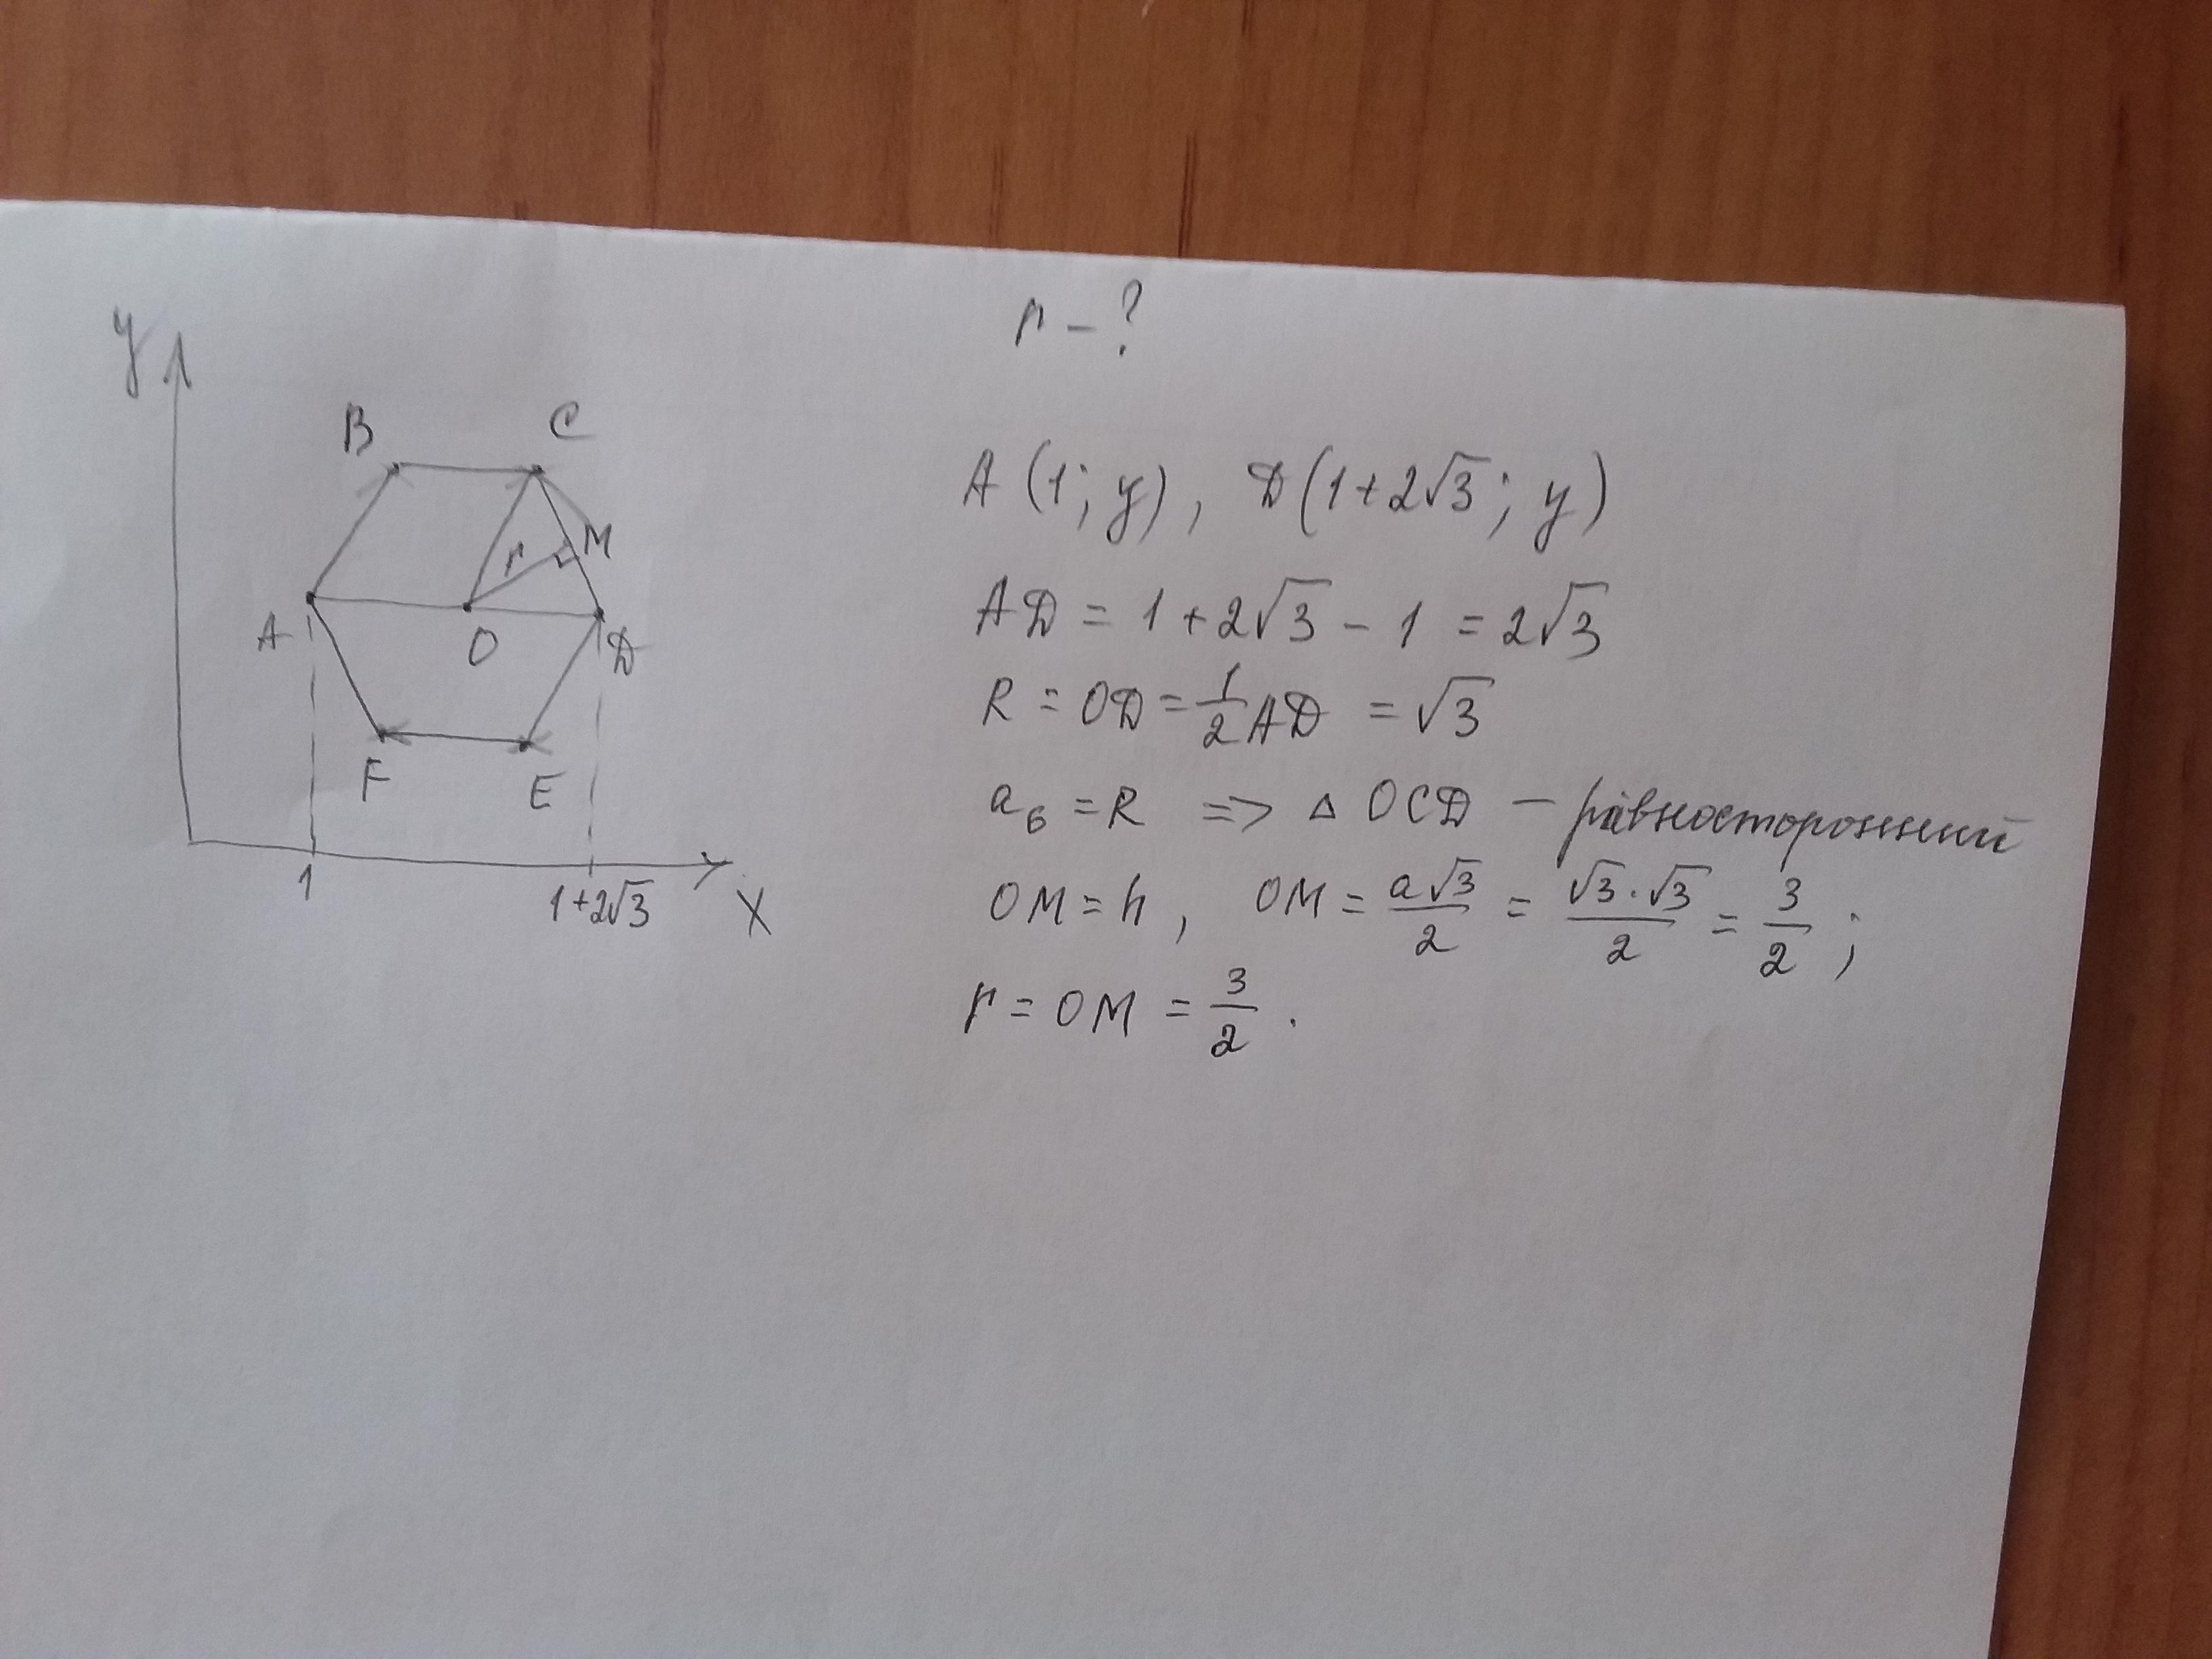 r - ?
y
B
C
M
r
A
O
D
F
E
1
1+2√3
X
A (1; y), D (1+2√3; y)
AD = 1+2√3 - 1 = 2√3
R = OD = 1/2 AD = √3
a₆ = R => △ OCD - равносторонний
OM = h, OM = a√3/2 = √3·√3/2 = 3/2;
r = OM = 3/2.